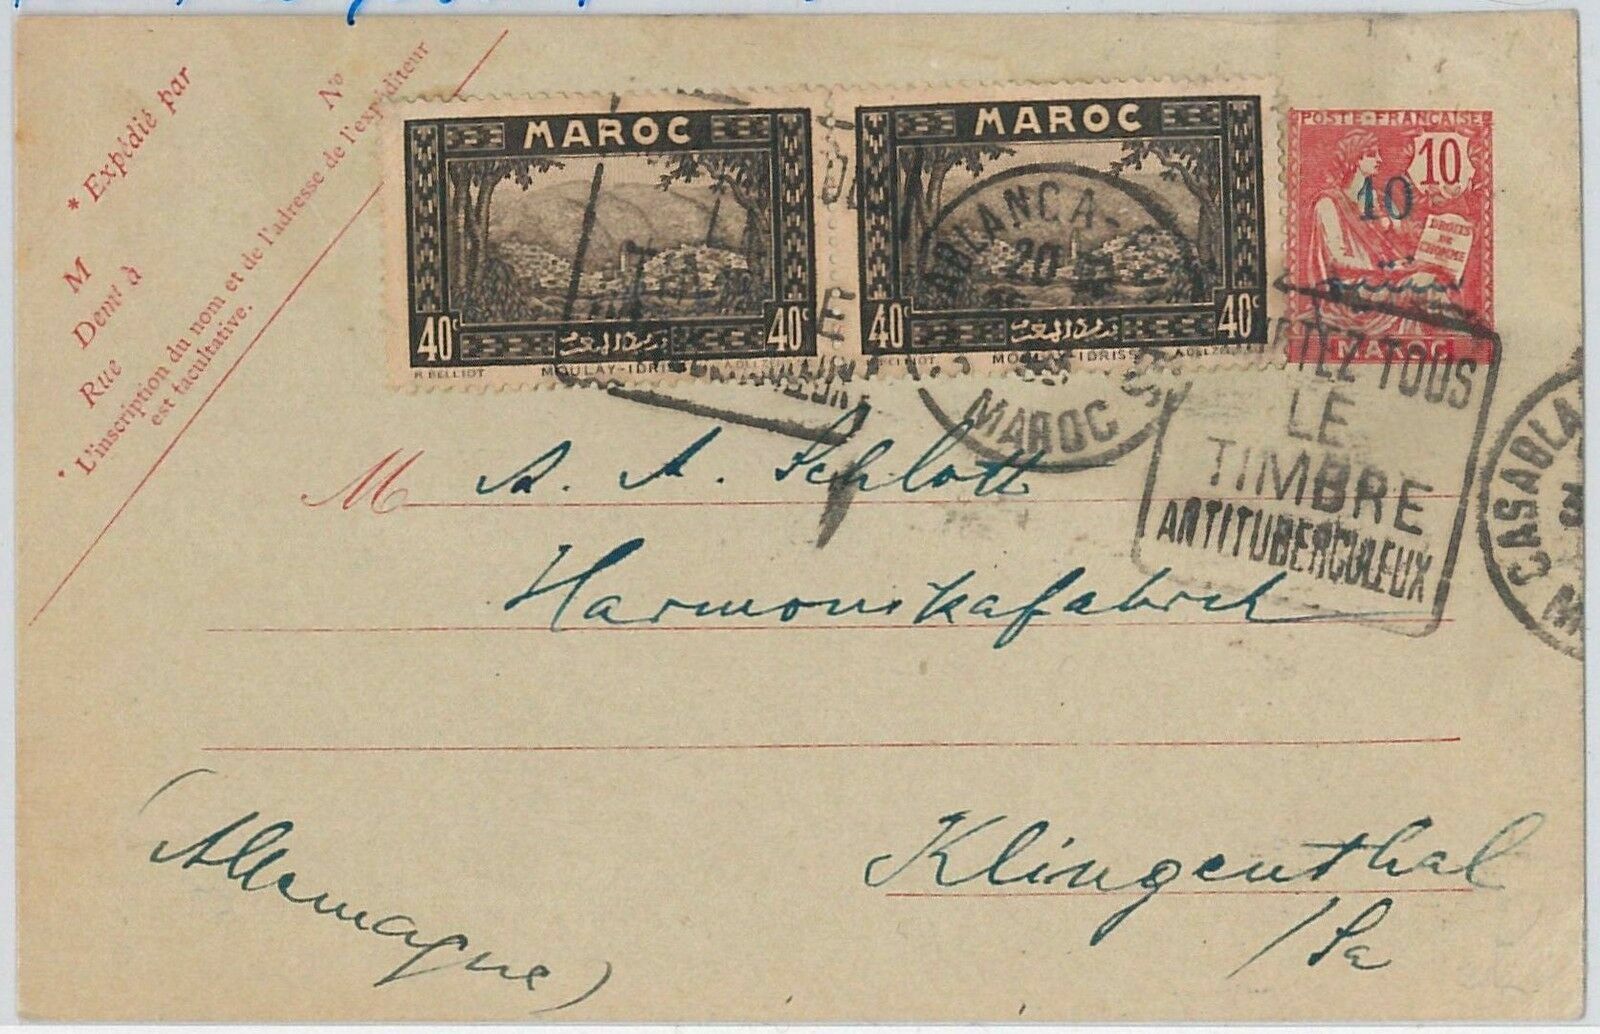 * Expédié par
M
Demt à
Rue
No
* L'inscription du nom et de l'adresse de l'expéditeur
est facultative.
MAROC
40c 40c
R. BELLIOT MOULAY-IDRISS
MAROC
40c 40c
MOULAY-IDRISS
POSTE FRANÇAISE
10
10
DROITS
DE
L'HOMME
MAROC
CASABLANCA
20
MAROC
TOUS
LE
TIMBRE
ANTITUBERCULEUX
CASABLA
M A. A. Schlott
Harmonikafabrik
Klingenthal
/Sa
(Allemagne)